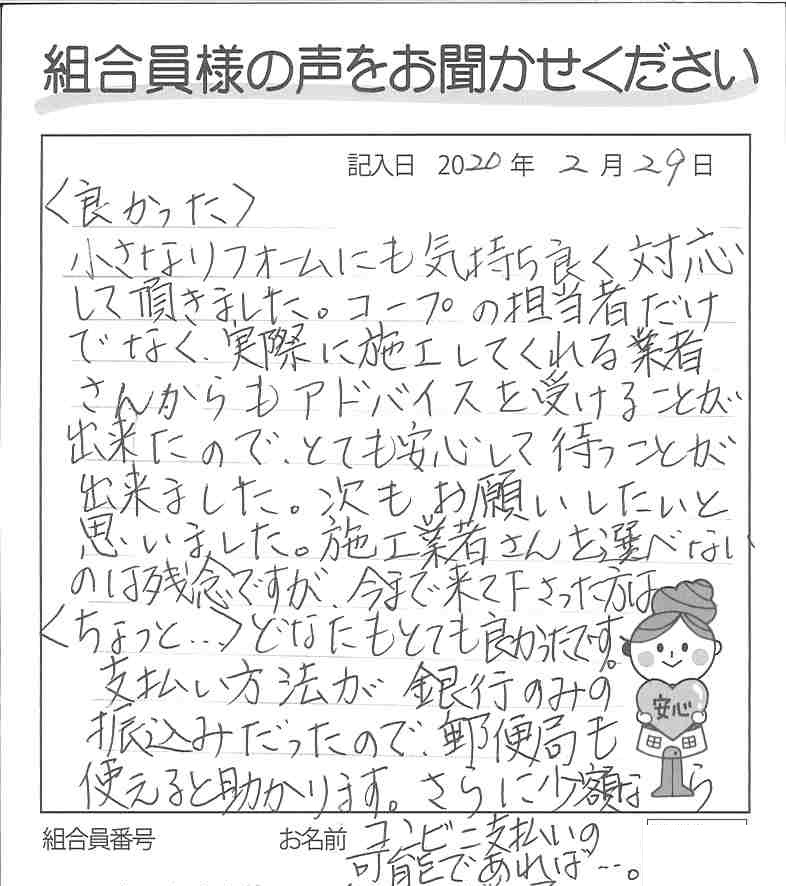 組合員様の声をお聞かせください
記入日 2020年 2月29日
〈良かった〉
小さなリフォームにも気持ち良く対応
して頂きました。コープの担当者だけ
でなく、実際に施工してくれる業者
さんからもアドバイスを受けることが
出来たので、とても安心して待つことが
出来ました。次もお願いしたいと
思いました。施工業者さんを選べない
のは残念ですが、今まで来て下さった方は
〈ちょっと‥〉どなたもとても良かったです。
支払い方法が銀行のみの
安心
振込みだったので、郵便局も
使えると助かります。さらに少額なら
組合員番号 お名前 コンビニ支払いの
可能であれば…。